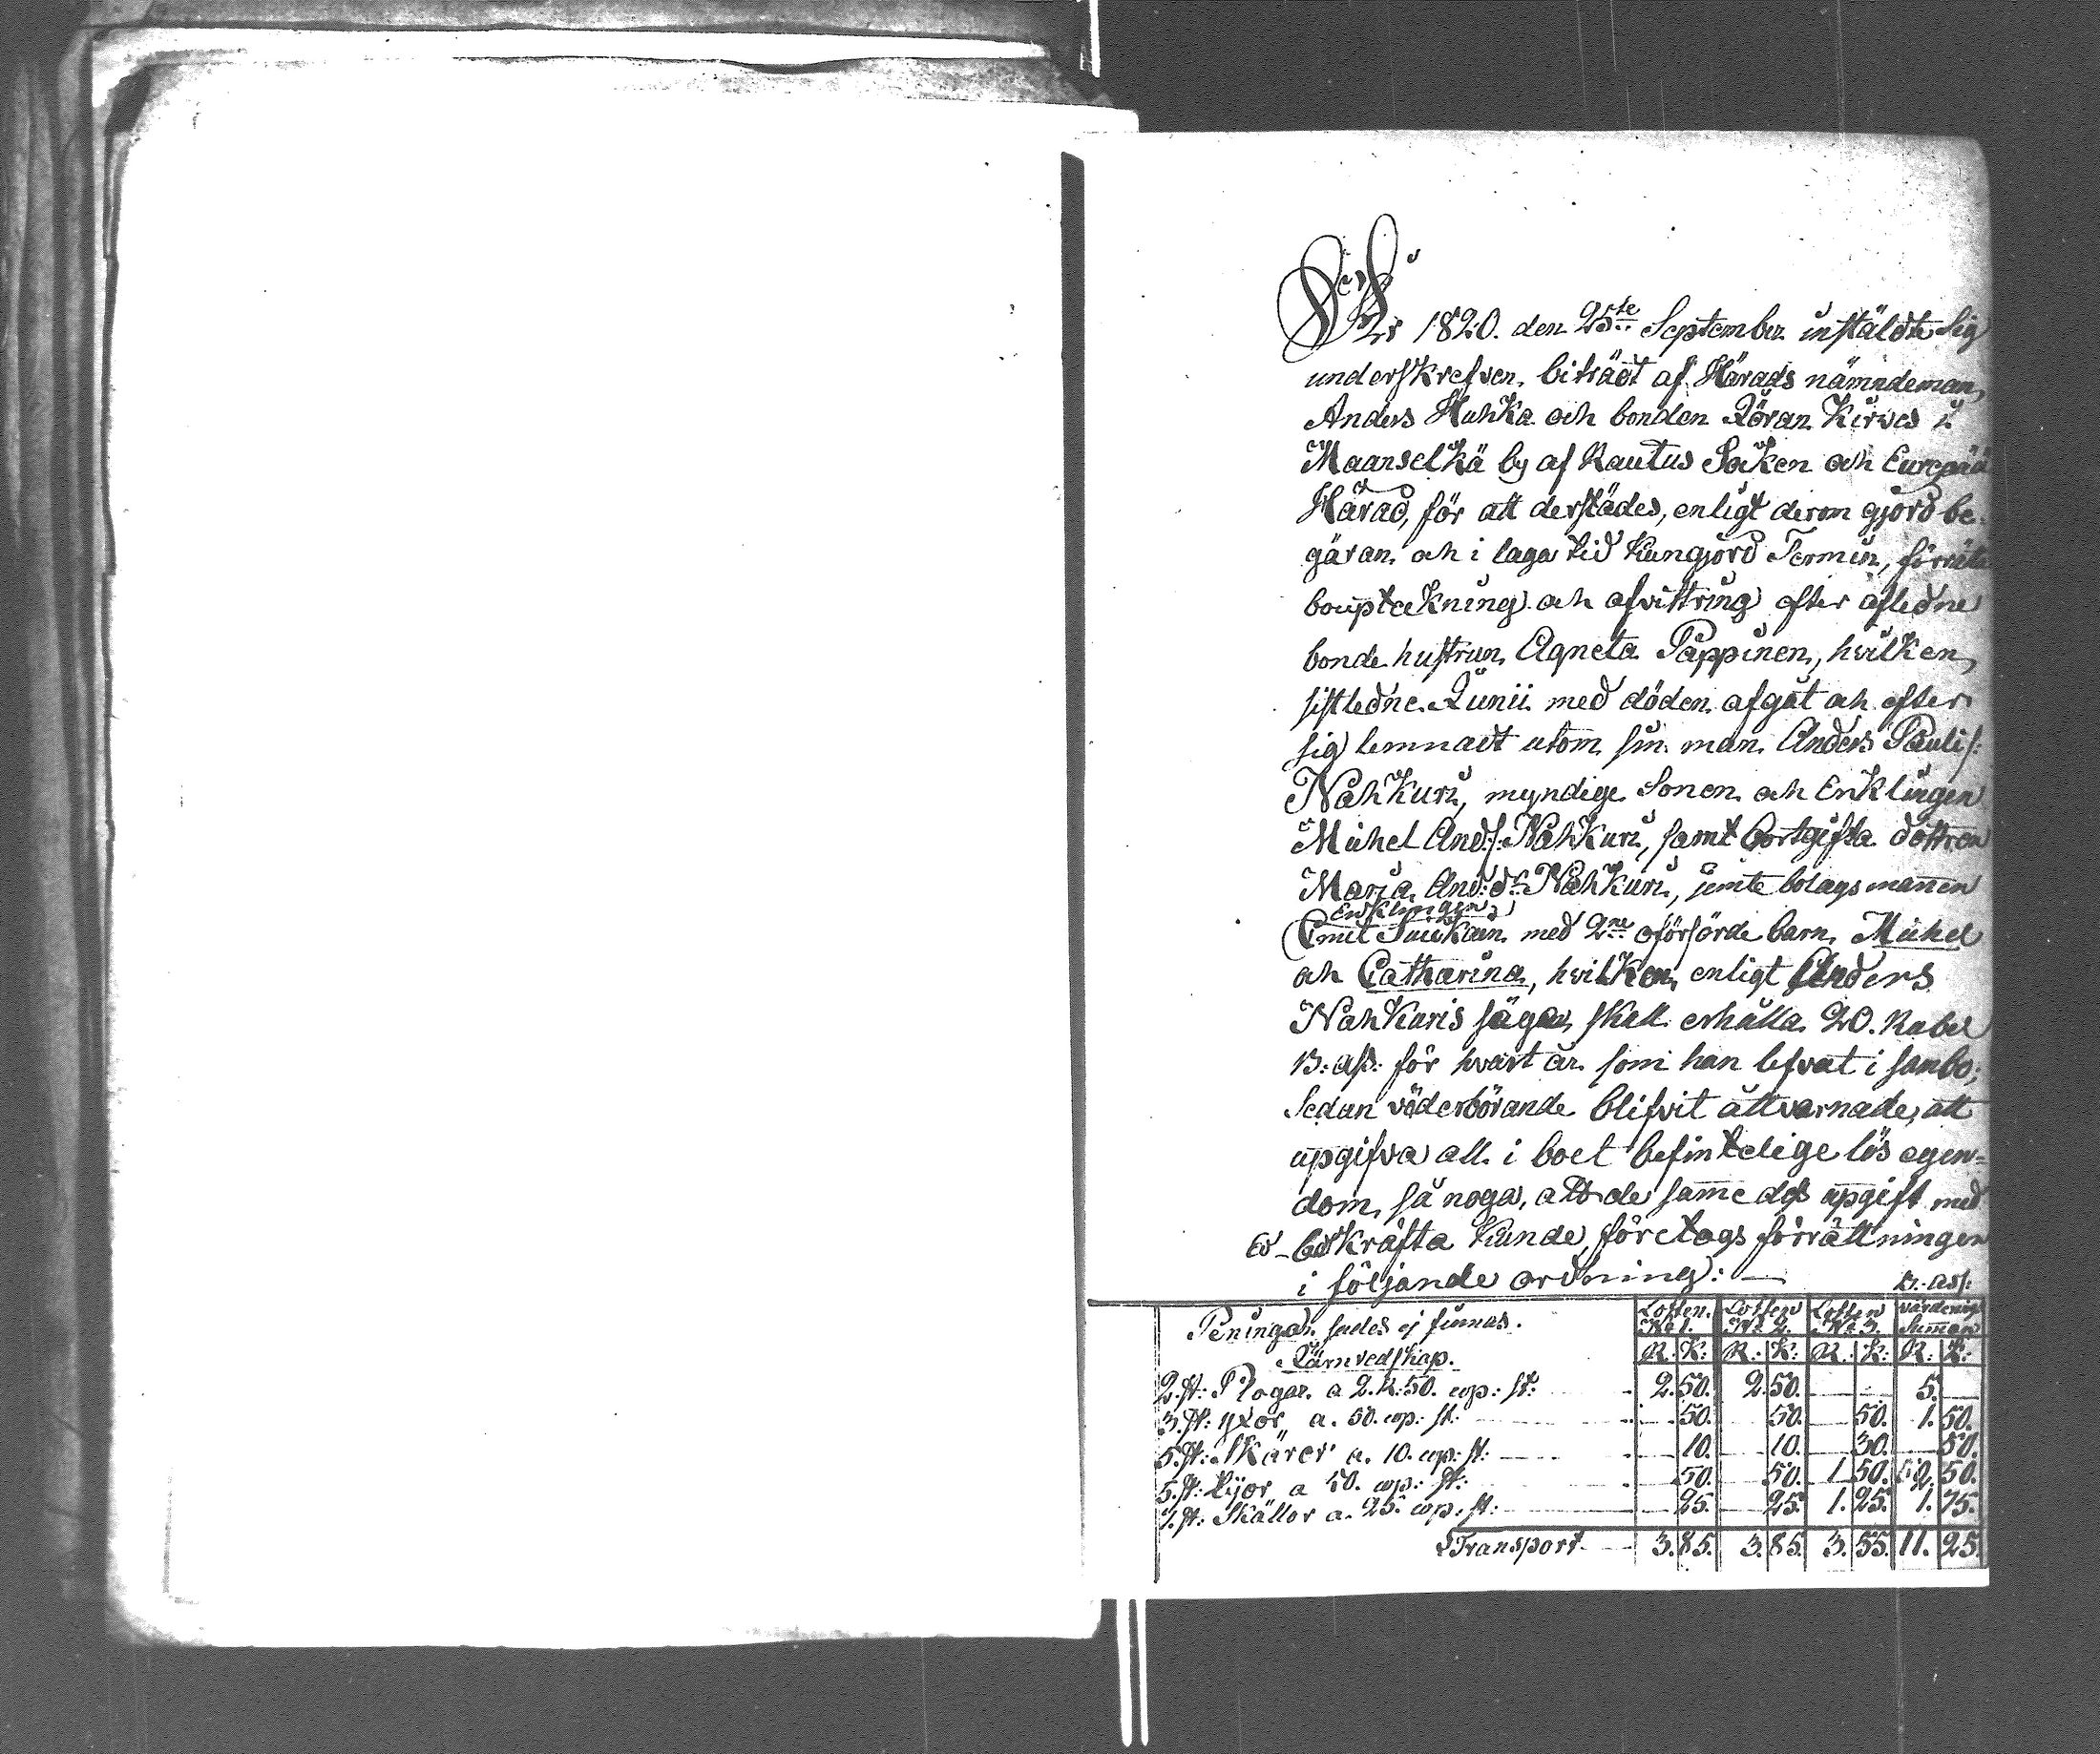 År 1820. den 25te September instäldte sig
underskrefven, biträdt af Härads nämndeman,
Anders Huhka och bonden Jöran Kirves i
Maanselkä by af Rautus Soken och Eurepää
Härad, för att derstädes, enligt derom gjord be-
gäran och i laga tid kungjord Termin, förrätta
boupteckning och afvittring efter afledne
bonde hustrun Agneta Pappinen, hvilken
sistledne Junii med döden afgåt och efter
sig lemnadt utom sin man Anders Paulis:
Nahkuri, myndige Sonen och Enklingen
Michel And:s: Nahkuri, samt bortgifta dottren
Marja And: dr Nahkuri, jemte bolagsmannen
Enklingen
Emil Suikain med 2ne oförsörde barn, Michel
och Catharina, hvilken enligt Anders
Nahkuris sägen skall erhålla 20. Rubel
B: ass: för hvart år som han lefvat i sanbo;
Sedan vederbörande blifvit åttvarnade, att
upgifva all i boet befintelige lös egen-
dom, så noga, att de samme dess upgift med
Ed bekräfta kunde, företogs förrättningen
i följande ordning: —
B. ass:
Peningar sades ej finnas. Lotten No 1. Lotten No 2. Lotten No 3. värderings Summan
Järnredskap. R. K: R. K: R. K: R. K:
2. st: Plogar a 2. R: 50. cop: st: 2. 50. 2. 50. — — 5. —
3. st: yxor a. 50. cop: st: — 50. — 50. — 50. 1. 50.
5. st: Skäror a. 10. cop: st: — 10. — 10. — 30. — 50.
5. st: Lijor a 50. cop: st: — 50. — 50. 1. 50. 2. 50.
7. st: Skällor a. 25. cop. st: — 25. — 25. 1. 25. 1. 75.
Transport 3. 85. 3. 85. 3. 55. 11. 25.